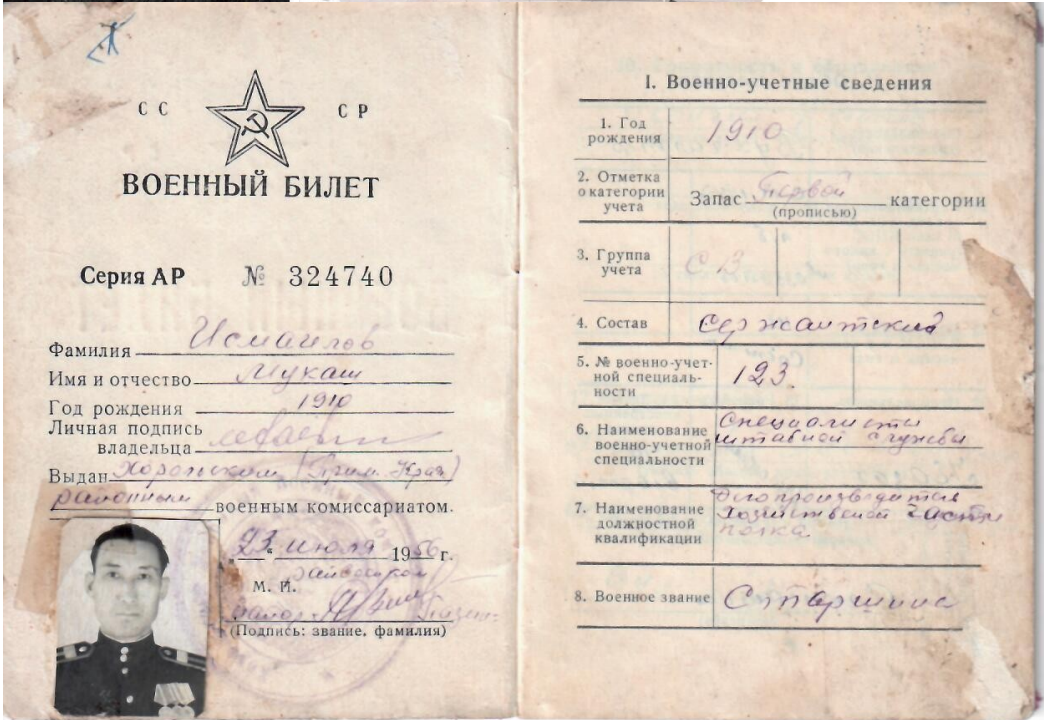 СС СР
ВОЕННЫЙ БИЛЕТ
Серия АР № 324740
Фамилия Исмаилов
Имя и отчество Мукаш
Год рождения 1910
Личная подпись
владельца
Выдан Хорольским (Прим. Края)
районным военным комиссариатом.
23 июля 1956 г.
М. П.
майор
(Подпись: звание, фамилия)
I. Военно-учетные сведения
1. Год
рождения 1910
2. Отметка
о категории
учета
Запас Первой категории
(прописью)
3. Группа
учета
4. Состав Сержантский
5. № военно-учет-
ной специаль-
ности
123.
6. Наименование
военно-учетной
специальности
Специалисты
штабной службы
7. Наименование
должностной
квалификации
Делопроизводитель
хозяйственной части
полка
8. Военное звание Старшина